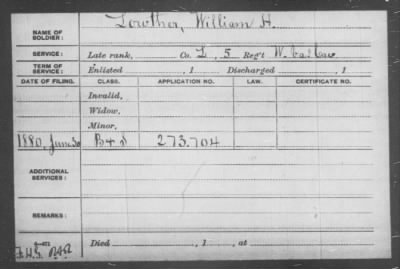 NAME OF SOLDIER: Lowther, William H.
SERVICE: Late rank, Co. L, 5 Reg't W. Va. Cav.
TERM OF SERVICE: Enlisted , 1 Discharged , 1
DATE OF FILING. CLASS. APPLICATION NO. LAW. CERTIFICATE NO.
Invalid,
Widow,
Minor,
1880, June 30 273.704
ADDITIONAL SERVICES:
REMARKS:
Died , 1 , at